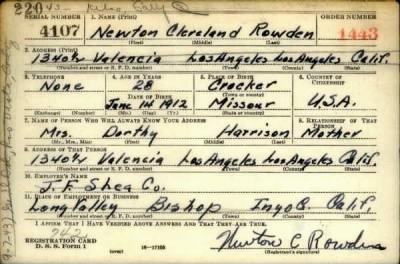 220
SERIAL NUMBER 1. NAME (Print) ORDER NUMBER
4107 Newton Cleveland Rowden 1443
(First) (Middle) (Last)
2. ADDRESS (Print)
1340½ Valencia Los Angeles Los Angeles Calif.
(Number and street or R. F. D. number) (Town) (County) (State)
3. TELEPHONE 4. AGE IN YEARS 5. PLACE OF BIRTH 6. COUNTRY OF CITIZENSHIP
None 28 Crocker
DATE OF BIRTH (Town or county)
June 14 1912 Missour U.S.A.
(Exchange) (Number) (Mo.) (Day) (Yr.) (State or country)
7. NAME OF PERSON WHO WILL ALWAYS KNOW YOUR ADDRESS 8. RELATIONSHIP OF THAT PERSON
Mrs. Dorthy Harrison Mother
(Mr., Mrs., Miss) (First) (Middle) (Last)
9. ADDRESS OF THAT PERSON
1340½ Valencia Los Angeles Los Angeles Calif.
(Number and street or R. F. D. number) (Town) (County) (State)
10. EMPLOYER'S NAME
J. F. Shea Co.
11. PLACE OF EMPLOYMENT OR BUSINESS
Long Valley Bishop Inyo Calif.
(Number and street or R. F. D. number) (Town) (County) (State)
I AFFIRM THAT I HAVE VERIFIED ABOVE ANSWERS AND THAT THEY ARE TRUE.
REGISTRATION CARD
D. S. S. Form 1 (over) 16—17105 Newton C Rowden